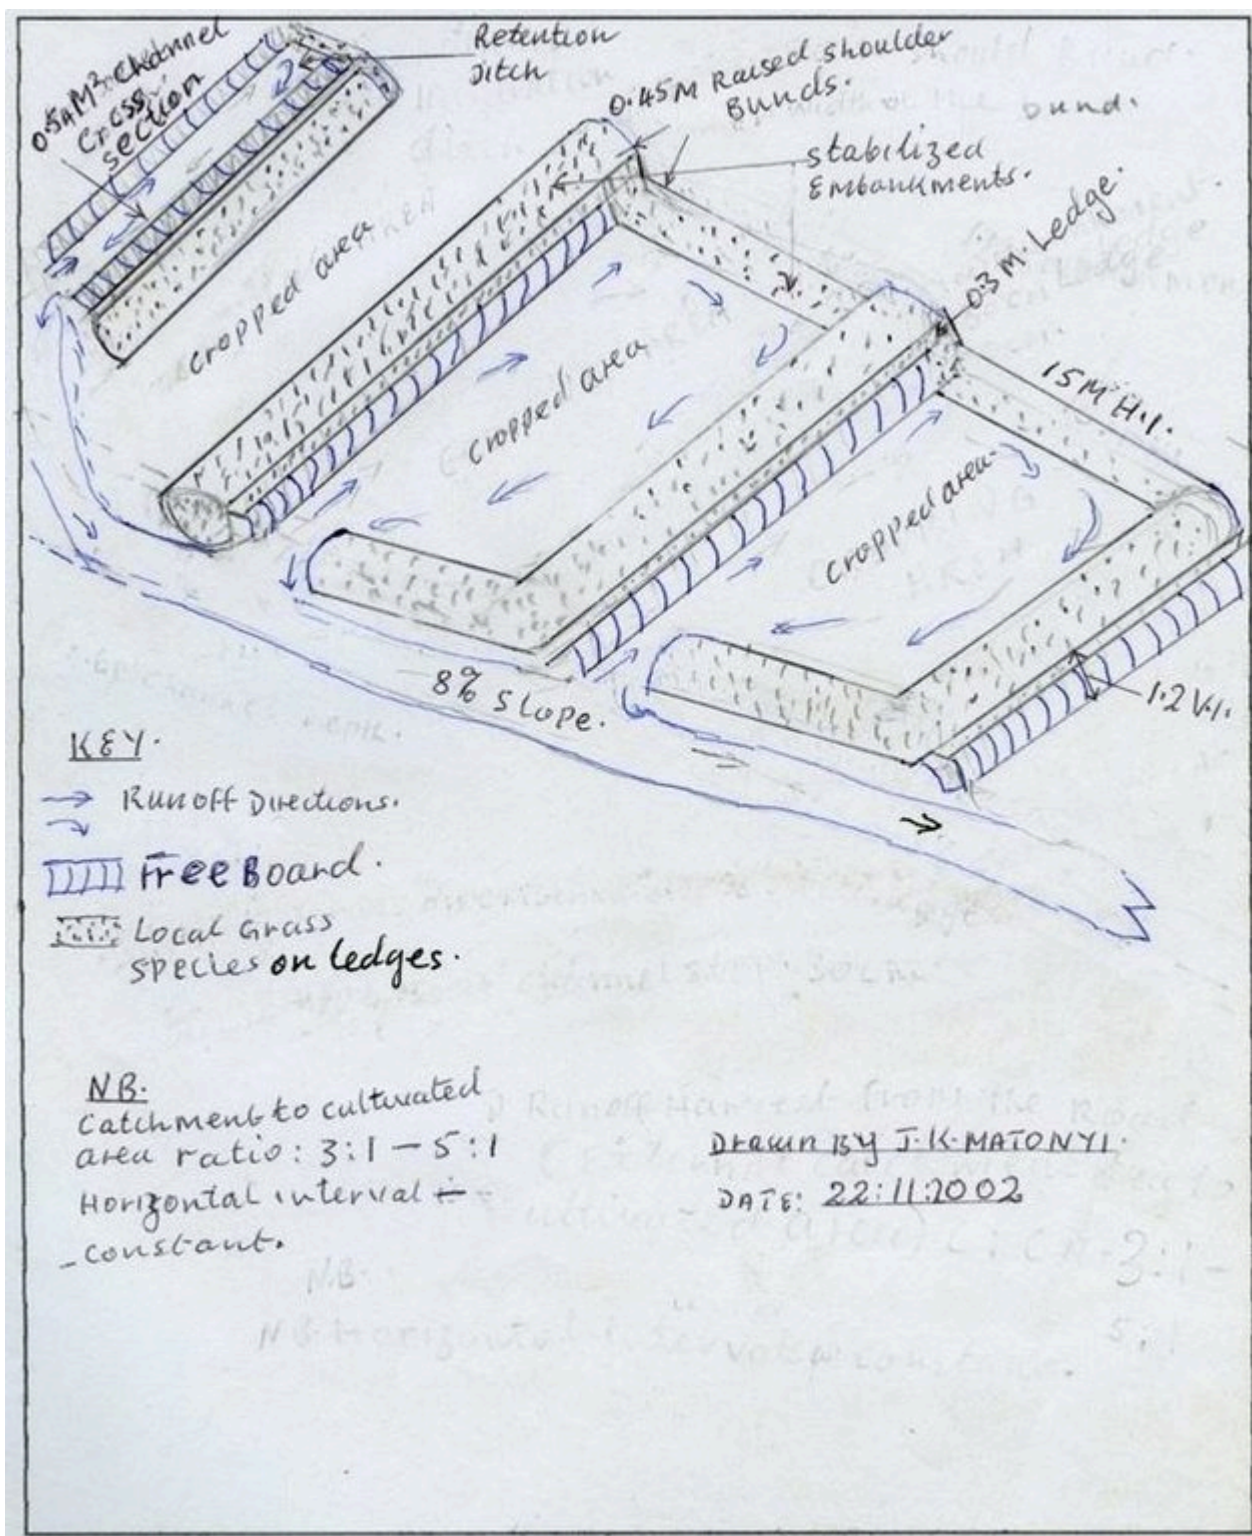 Retention
Ditch
0.54M² Channel
Cross
section
0.45M Raised shoulder
Bunds.
stabilized
Embankments.
0.3M. Ledge.
15M H.I.
Cropped area
Cropped area
Cropped area.
8% Slope.
1.2 V.I.
KEY.
Runoff Directions.
Free Board.
Local Grass
species on ledges.
NB.
Catchment to cultivated
area ratio: 3:1 - 5:1
Horizontal interval
- constant.
Drawn By J.K. MATONYI.
DATE: 22:11:2002